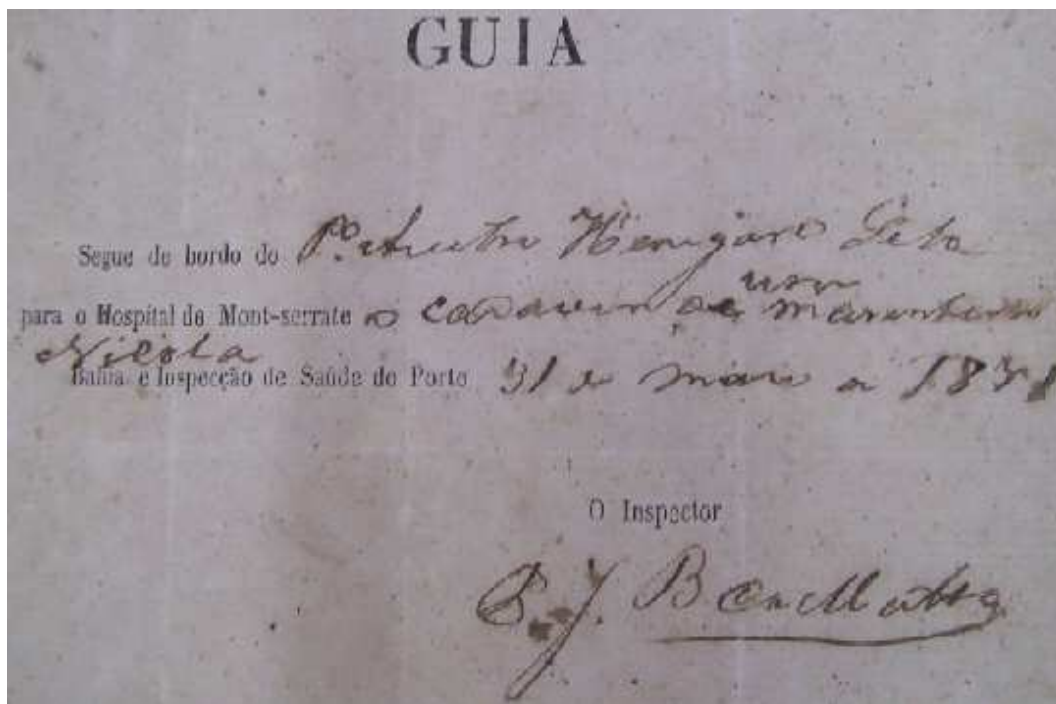 GUIA
Segue de bordo do Pº. Austro Hungaro Gela
para o Hospital de Mont-serrate o cadaver de um marinheiro
Nicola
Bahia e Inspecção de Saúde do Porto 31 de maio de 18
O Inspector
J. B da Matta